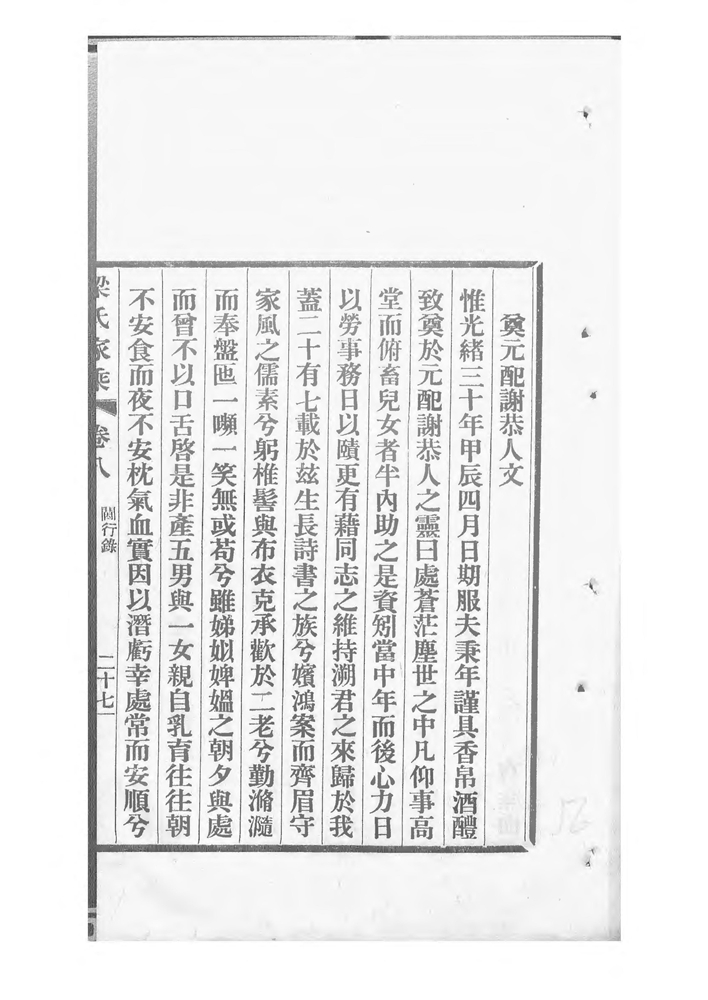 奠元配謝恭人文
惟光緒三十年甲辰四月日期服夫秉年謹具香帛酒醴
致奠於元配謝恭人之靈曰處蒼茫塵世之中凡仰事高
堂而俯畜兒女者半內助之是資矧當中年而後心力日
以勞事務日以賾更有藉同志之維持溯君之來歸於我
蓋二十有七載於茲生長詩書之族兮嬪鴻案而齊眉守
家風之儒素兮躬椎髻與布衣克承歡於二老兮勤滫瀡
而奉盤匜一嚬一笑無或苟兮雖娣姒婢媼之朝夕與處
而曾不以口舌啓是非產五男與一女親自乳育往往朝
不安食而夜不安枕氣血實因以潛虧幸處常而安順兮
梁氏家乘 卷八 閫行錄 二十七